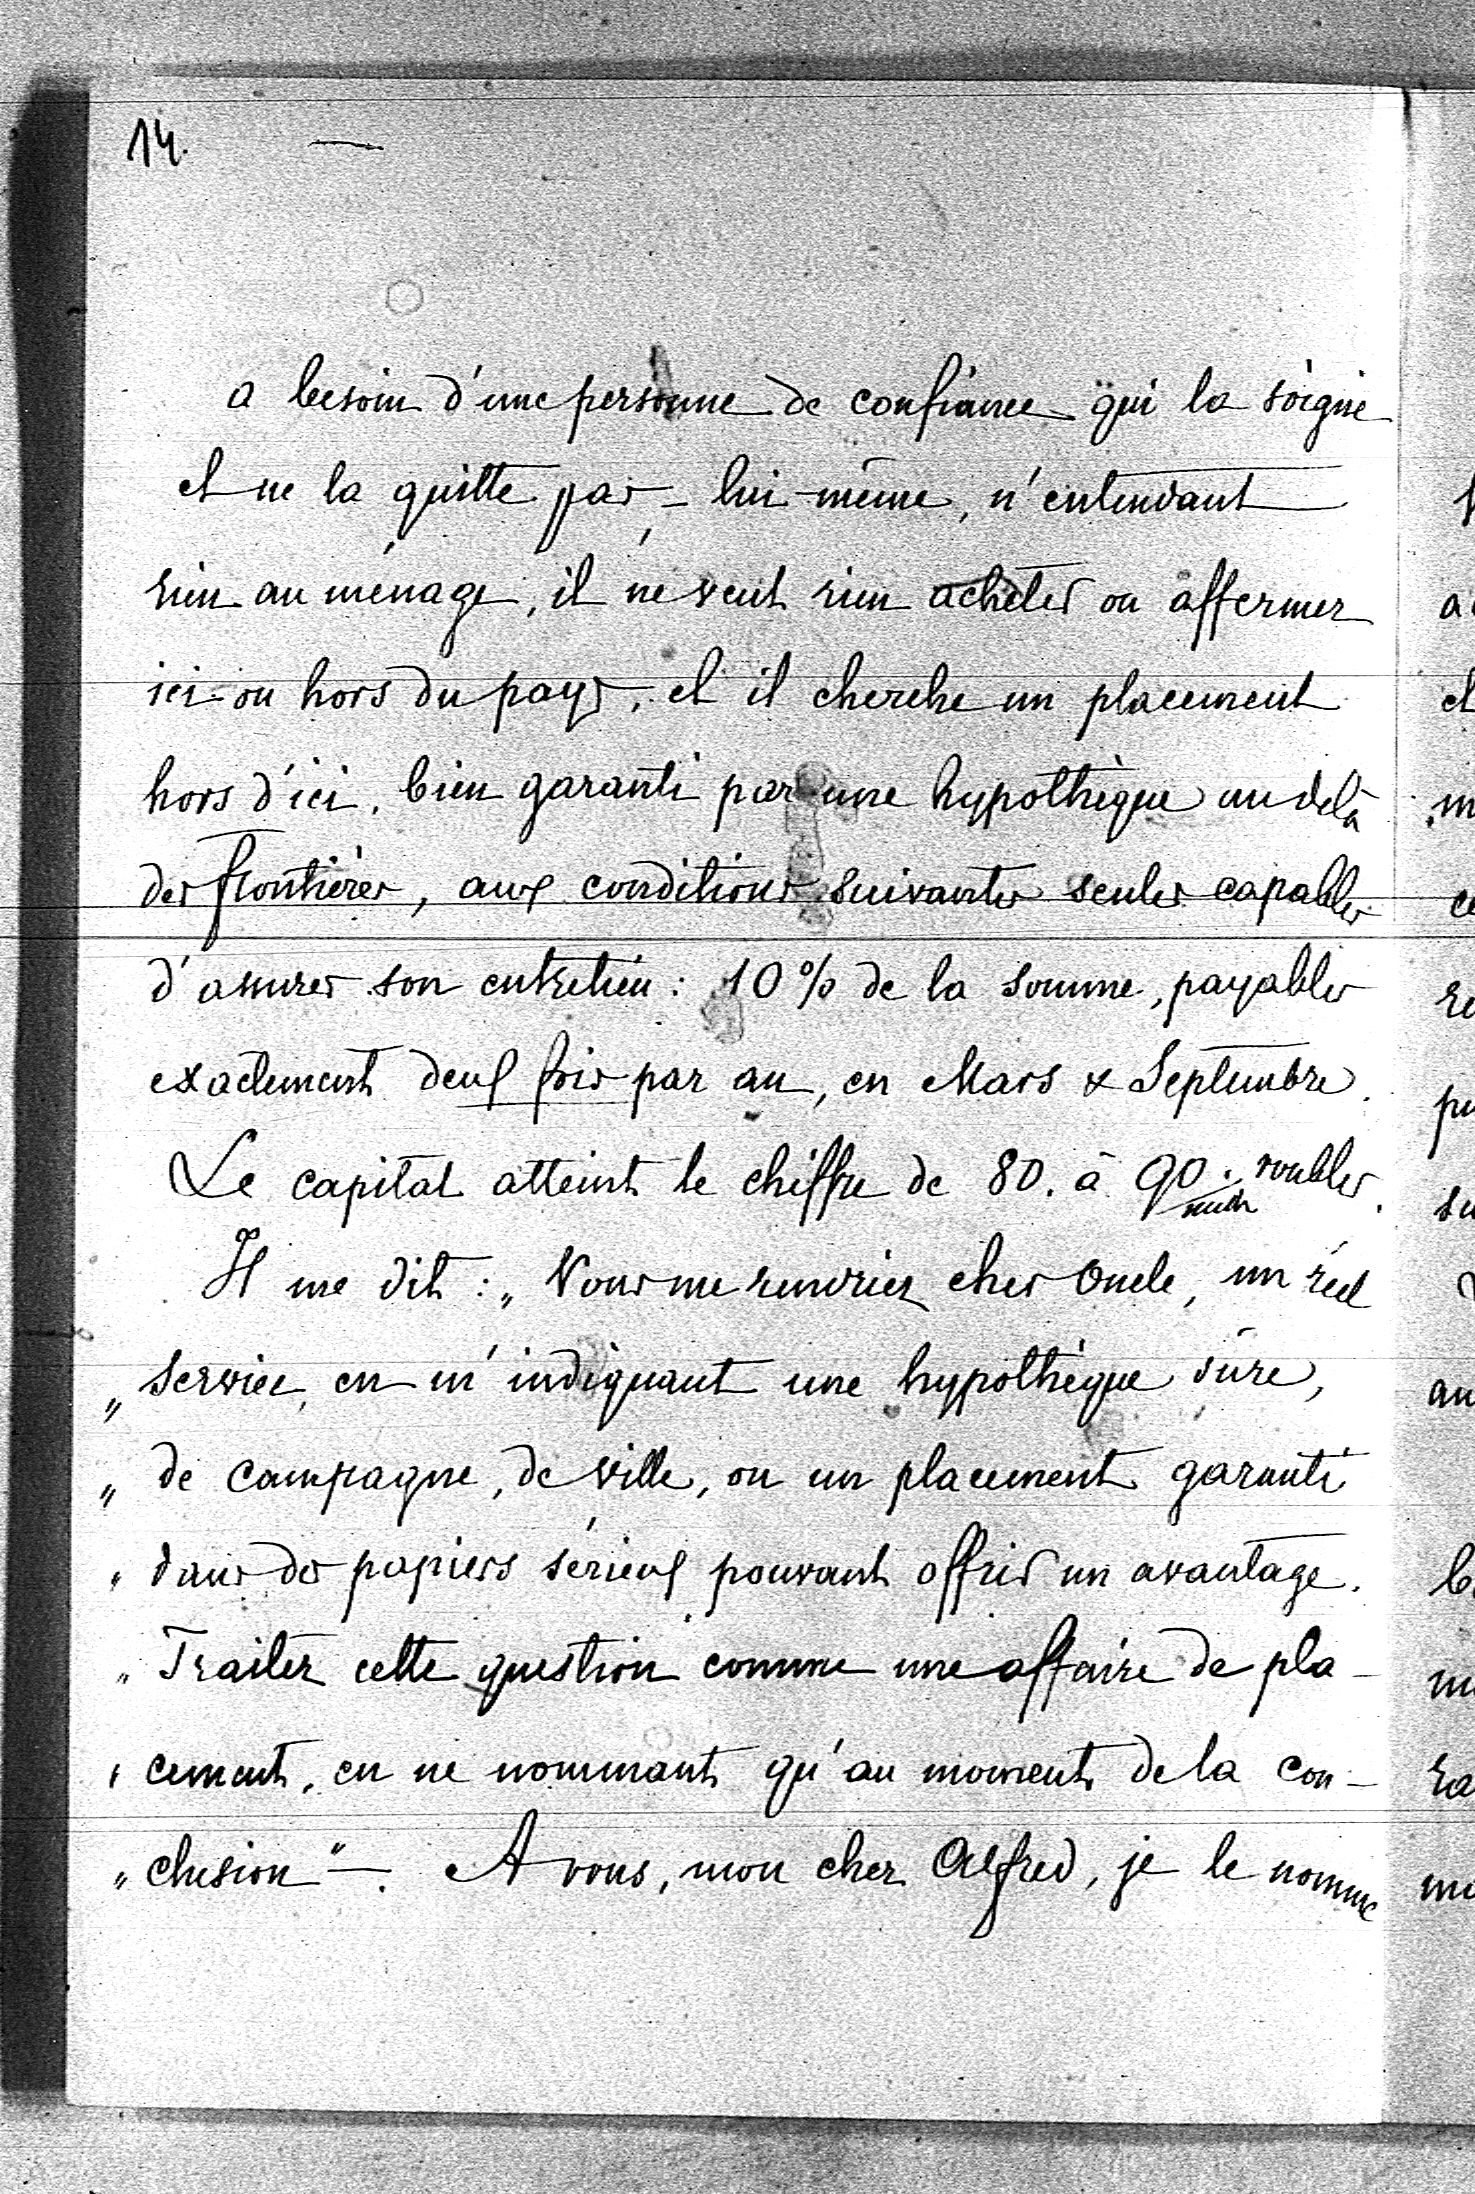 14.
a besoin d'une personne de confiance qui la soigne
et ne la quitte pas, - lui-même, n'entendant
rien au ménage, il ne veut rien acheter ou affermer
ici ou hors du pays, et il cherche un placement
hors d'ici, bien garanti par une hypothèque au delà
des frontières, aux conditions suivantes seules capables
d'assurer son entretien : 10% de la somme, payables
exactement deux fois par an, en Mars & Septembre.
Le capital atteint le chiffre de 80. à 90. roubles.
Il me dit : „ Vous me rendriez cher Oncle, un réel
„ service, en m'indiquant une hypothèque sûre,
„ de campagne, de ville, ou un placement garanti
„ dans des papiers sérieux pouvant offrir un avantage.
„ Traiter cette question comme une affaire de pla-
„ cement, en ne nommant qu'au moment de la con-
„ clusion " —. A vous, mon cher Alfred, je le nomme